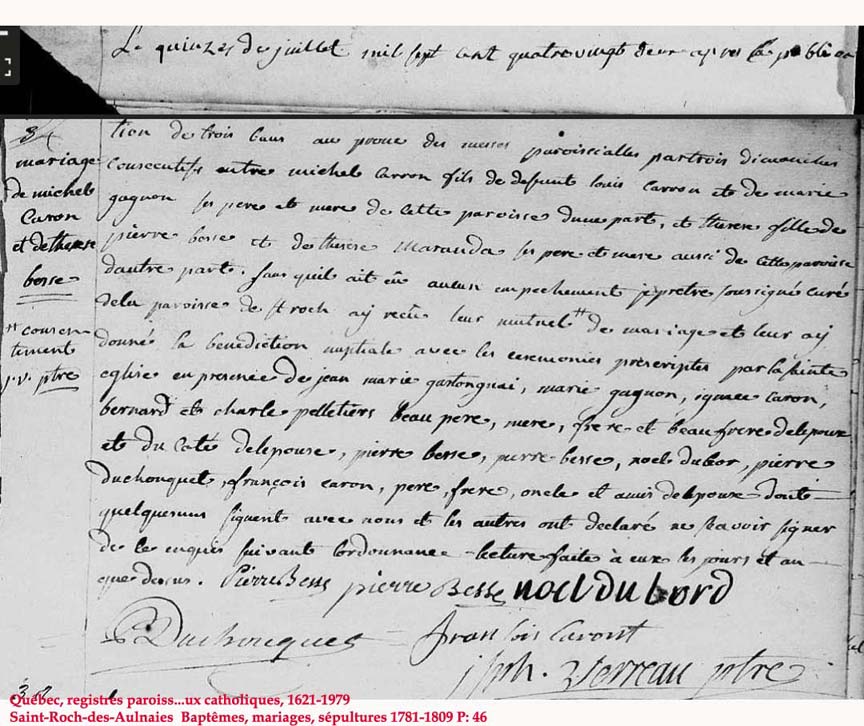 Le quinzes de juillet mil sept cent quatrevingt deux apres la publica
tion de trois bans au prone des messes paroissialles par trois dimanches
consecutifs entre michel Carron fils de defunt louis Carron et de marie
gagnon ses pere et mere de cette paroisse dune part, et therese fille de
pierre besse et de therese Maranda ses pere et mere aussi de cette paroisse
dautre part. sans quil ait eu aucun empechement je pretre soussigné curé
dela paroisse de st roch aij reçu leur mutuel # de mariage et leur aij
donné la benediction nuptiale avec les ceremonies prescriptes par la sainte
eglise en presence de jean marie gastonguai, marie gagnon, ignace caron,
bernard et charle pelletiers beau pere, mere, frere et beau frere delepoux
et du coté delepouse, pierre besse, pierre besse, noel dubor, pierre
duchouquet, françois caron, pere, frere, oncle et amis delepouse dont
quelquesuns signent avec nous et les autres ont declaré ne scavoir signer
de ce enquis suivant lordonnance lecture faite à eux les jours et an
que dessus. Pierre Bess pierre Besse noel du bord
P Duchouques fransois Caront
jsph. Verreau ptre
34
mariage
de michel
Caron
et de therese
besse
# consen-
tement
j. v. ptre
Québec, registres paroiss...ux catholiques, 1621-1979
Saint-Roch-des-Aulnaies Baptêmes, mariages, sépultures 1781-1809 P: 46